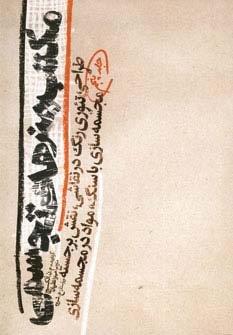 مکتب هنرهای تجسمی
جلد پنجم
طراحی، تئوری رنگ در نقاشی، نقش برجسته
مجسمه سازی با سنگ، مواد در مجسمه سازی